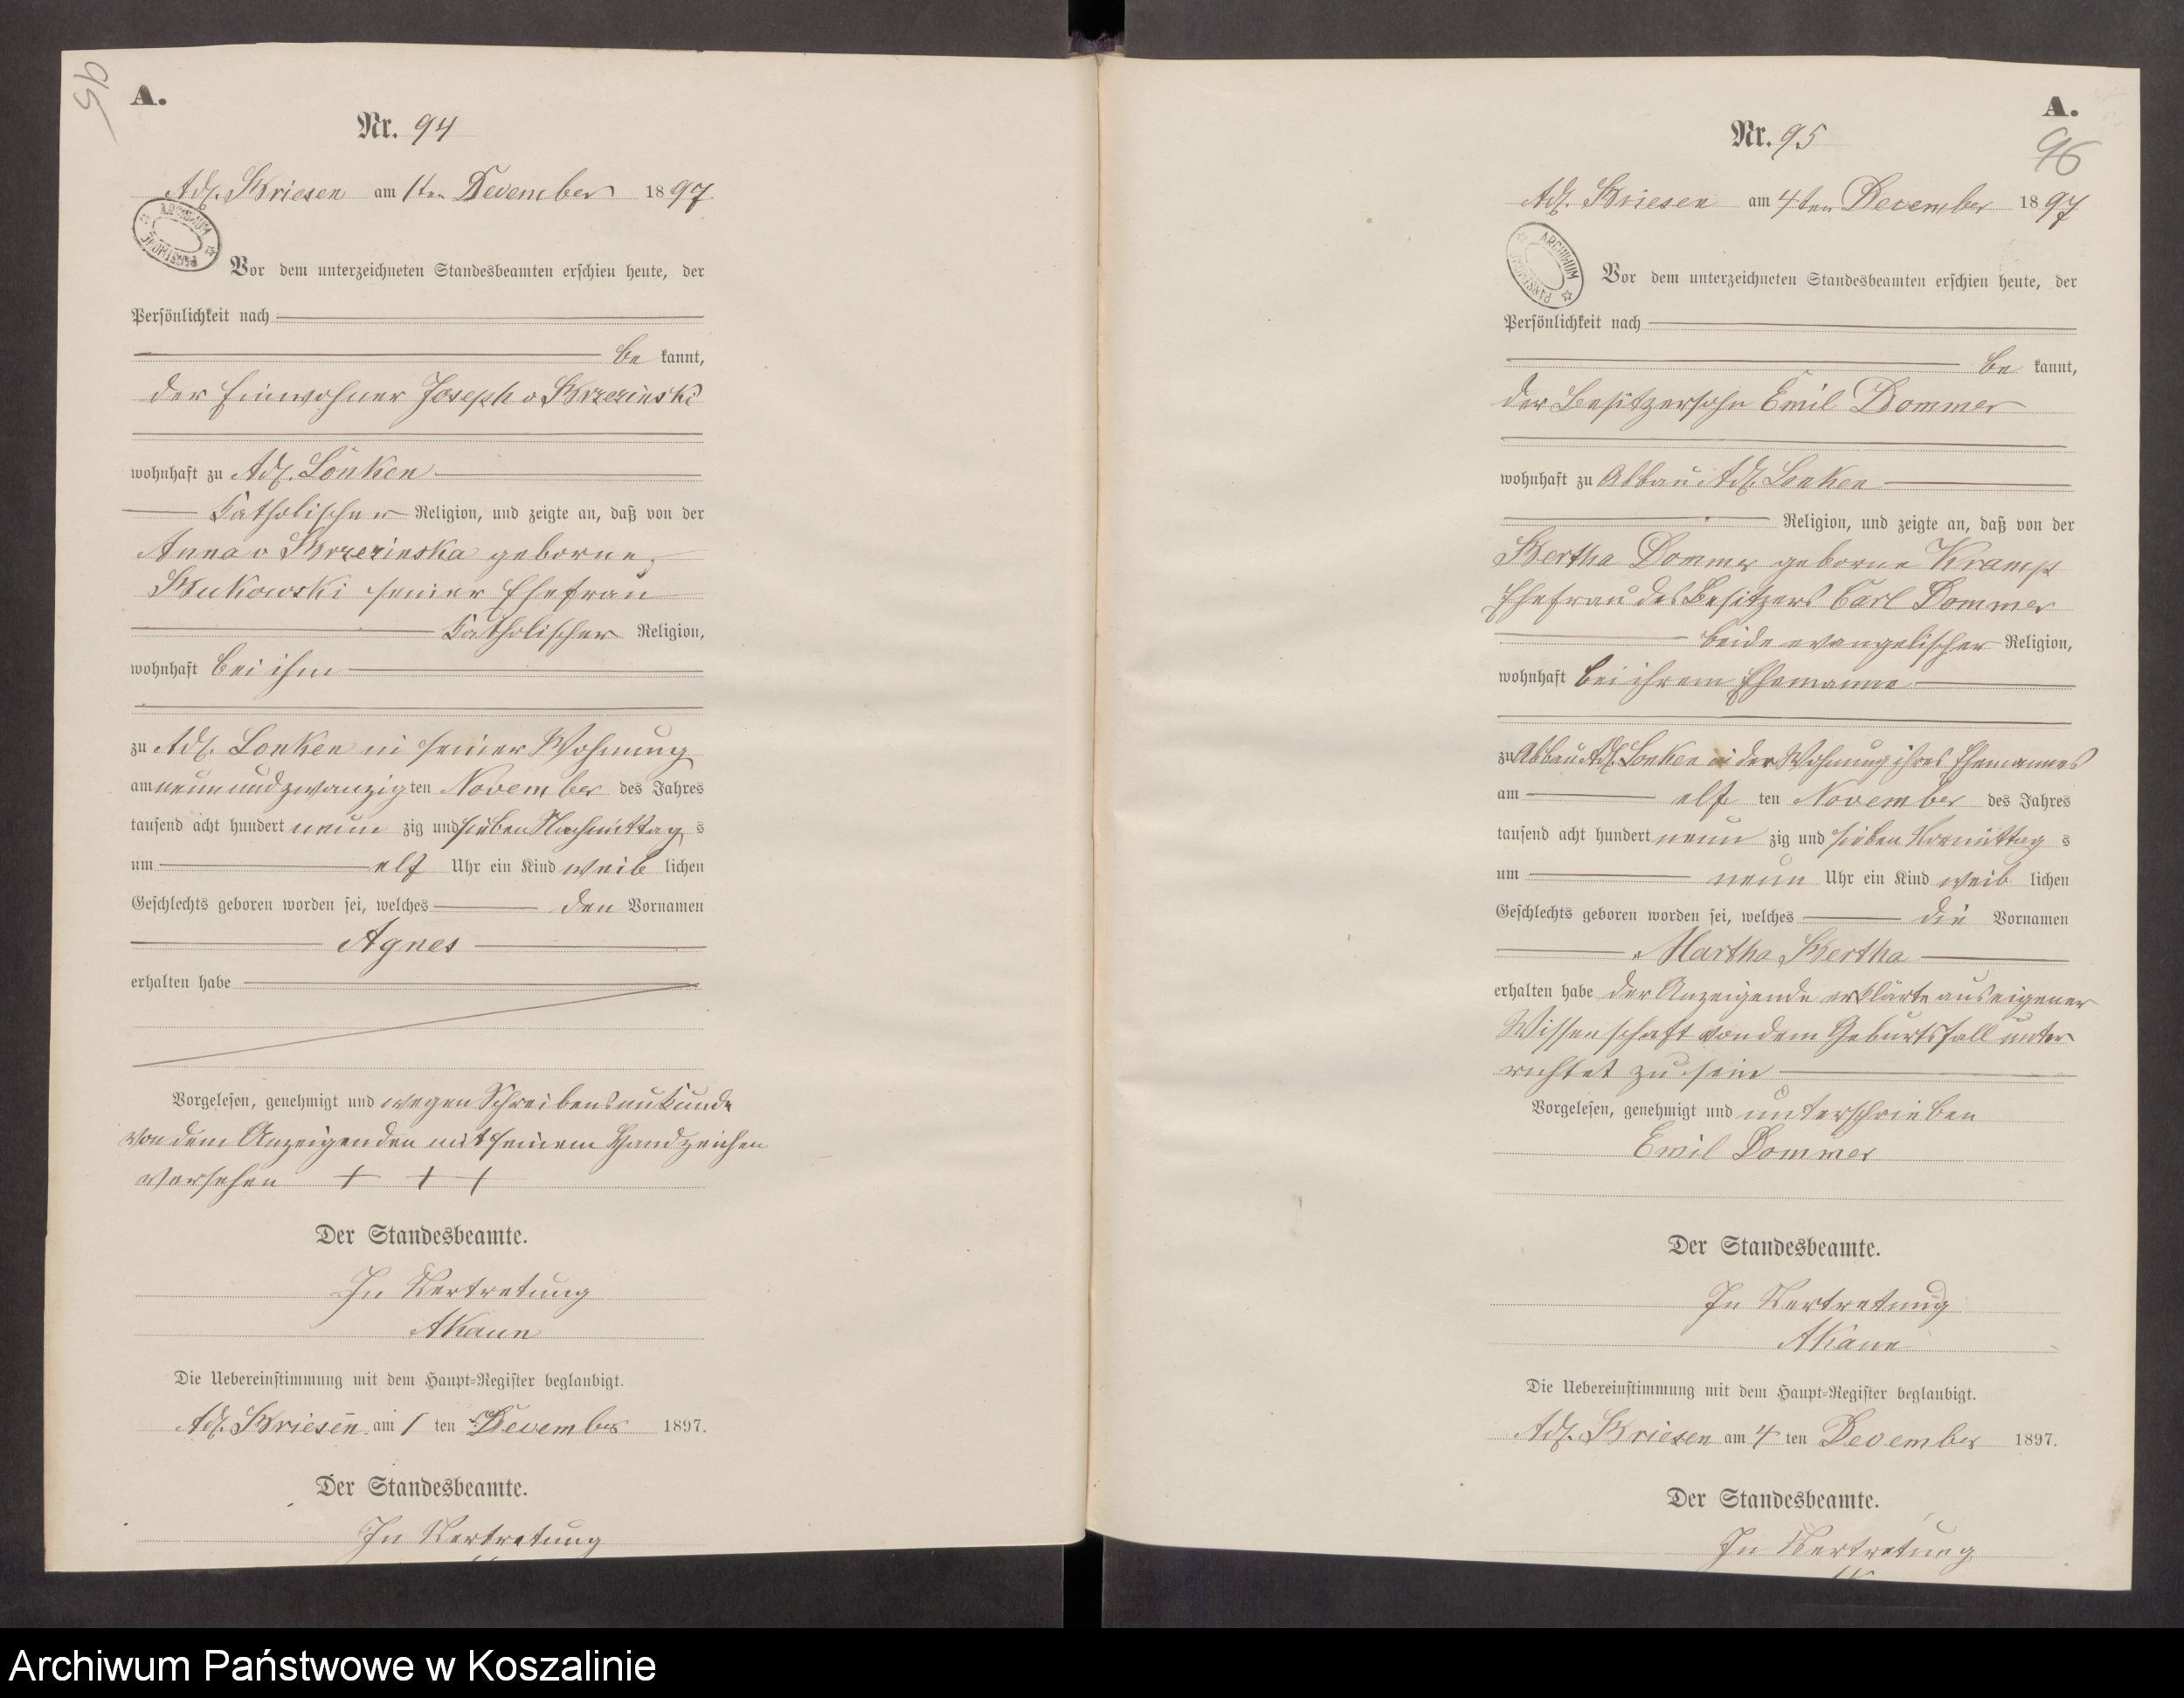 95
A.
Nr. 94
Adl. Briesen am 1ten December 1897
ARCHIWUM PAŃSTWOWE
Vor dem unterzeichneten Standesbeamten erschien heute, der
Persönlichkeit nach
be kannt,
der Einwohner Joseph v Brzezinski
wohnhaft zu Adl. Lonken
Katholischer Religion, und zeigte an, daß von der
Anna v Brzezinska geborne
Bukowski seiner Ehefrau
Katholischer Religion,
wohnhaft bei ihm
zu Adl. Lonken in seiner Wohnung
am neunundzwanzig ten November des Jahres
tausend acht hundert neun zig und sieben Nachmittag s
um elf Uhr ein Kind weib lichen
Geschlechts geboren worden sei, welches den Vornamen
Agnes
erhalten habe
Vorgelesen, genehmigt und wegen Schreibensunkunde
von dem Anzeigenden mit seinem Handzeichen
versehen + + +
Der Standesbeamte.
In Vertretung
Die Uebereinstimmung mit dem Haupt-Register beglaubigt.
Adl. Briesen am 1 ten December 1897.
Der Standesbeamte.
In Vertretung
A.
96
Nr. 95
Adl. Briesen am 4ten December 1897
ARCHIWUM PAŃSTWOWE
Vor dem unterzeichneten Standesbeamten erschien heute, der
Persönlichkeit nach
be kannt,
der Besitzersohn Emil Dommer
wohnhaft zu Abbau Adl. Lonken
Religion, und zeigte an, daß von der
Bertha Dommer geborne Kramp
Ehefrau des Besitzers Carl Dommer
beide evangelischer Religion,
wohnhaft bei ihrem Ehemanne
zu Abbau Adl. Lonken in der Wohnung ihres Ehemannes
am elf ten November des Jahres
tausend acht hundert neun zig und sieben Vormittag s
um neun Uhr ein Kind weib lichen
Geschlechts geboren worden sei, welches die Vornamen
Martha Bertha
erhalten habe der Anzeigende erklärte aus eigener
Wissenschaft von dem Geburtsfall unter
richtet zu sein
Vorgelesen, genehmigt und unterschrieben
Emil Dommer
Der Standesbeamte.
In Vertretung
Die Uebereinstimmung mit dem Haupt-Register beglaubigt.
Adl. Briesen am 4 ten December 1897.
Der Standesbeamte.
In Vertretung
Archiwum Państwowe w Koszalinie